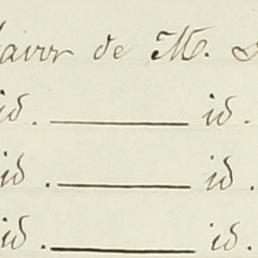 favor de M.
id. ——— id.
id. ——— id.
id. ——— id.